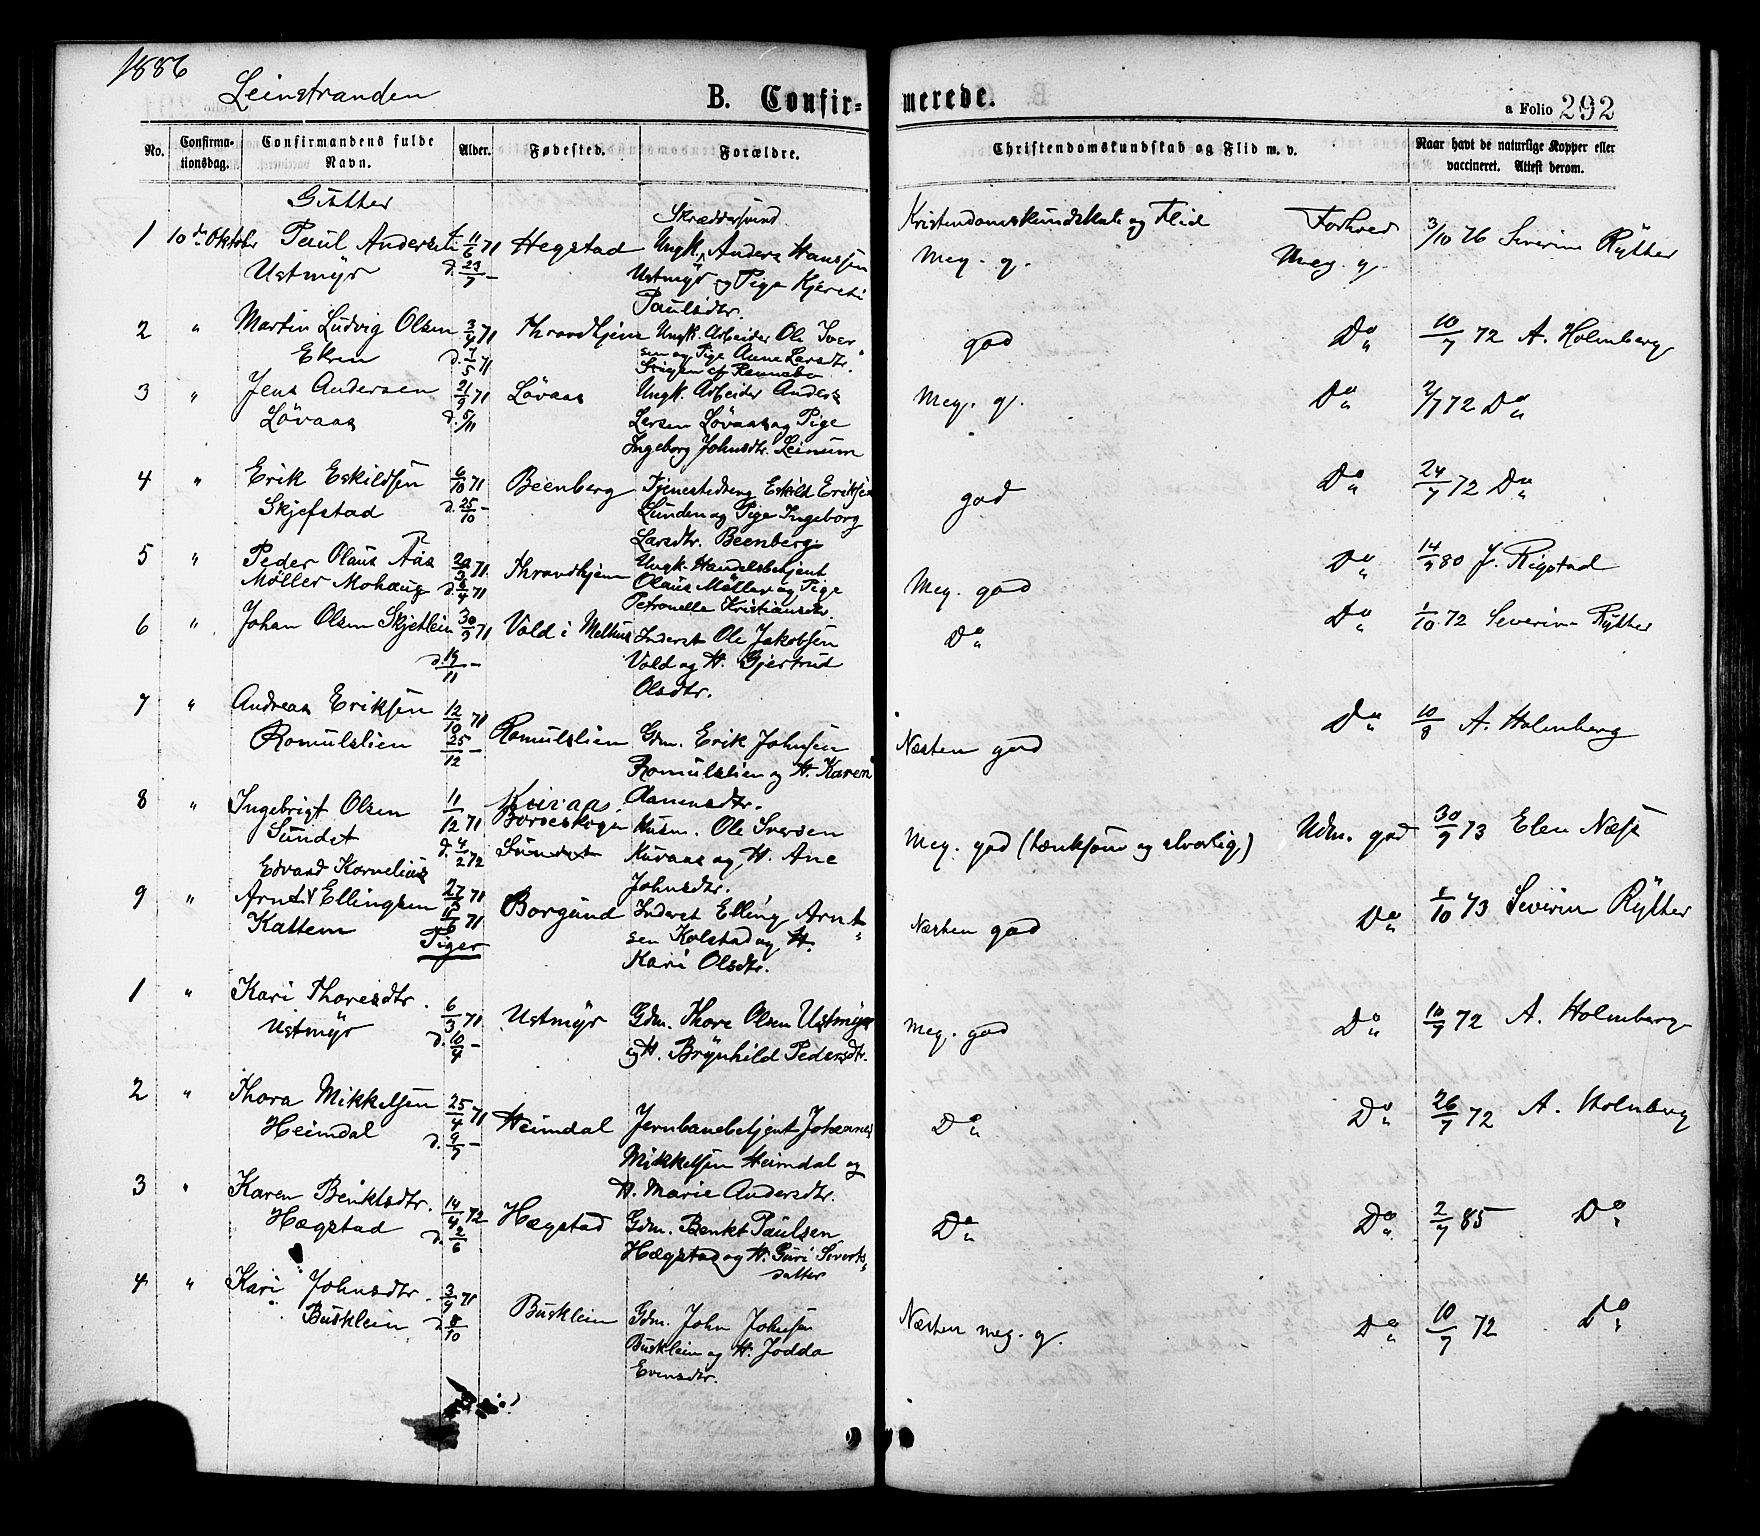 1886
Leinstranden
B. Confirmerede.
a Folio 292
No.
Confirmationsdag.
Confirmandens fulde Navn.
Alder.
Fødested.
Forældre.
Christendomskundskab og Flid m. v.
Naar havt de naturlige Kopper eller vaccineret. Attest derom.
Gutter
Kristendomskundskab og Flid Forhold
Skræddersvend
1 10de Oktober Paul Andersen f. 11/6 71 Hegstad Ungk. Anders Hanssen Meg. g. Meg. g. 3/10 76 Severin Rytter
Ustmyr d. 23/7 - Ustmyr og Pige Kjersti
Paulsdtr.
2 " Martin Ludvig Olsen 3/4 71 Throndhjem Ungk. Arbeider Ole Iver- god Do 10/7 72 A. Holmberg
Ekren d. 7/5 71 sen og Pige Anne Larsdtr.
Stigen af Rennebo
3 " Jens Andersen 21/9 71 Løvaas Ungk. Arbeider Anders Meg. g. Do 2/7 72 Do
Løvaas d. 5/11 Larsen Løvaas og Pige
Ingeborg Johnsdtr. Leinum
4 " Erik Eskildsen 6/10 71 Beenberg Tjenestedreng Eskild Eriksen god Do 24/7 72 Do
Skjefstad d. 25/10 - Lunden og Pige Ingeborg
Larsdtr. Beenberg
5 " Peder Olaus Aas 20/2 71 Throndhjem Ungk. Handelsbetjent Meg. god Do 14/9 80 J. Rigstad
Møller Mohaug d. 8/4 71 Olaus Møller og Pige
Petronelle Kristiansdtr.
6 " Johan Olsen Skjetlein 30/9 71 Vold i Melhus Inderst Ole Jakobsen Do Do 1/10 72 Severin Rytter
d. 19/11 - Vold og H. Gjertrud
Olsdtr.
7 " Andreas Eriksen 12/10 71 Romulslien Gdm. Erik Johnsen Næsten god Do 10/8 A. Holmberg
Romulslien 25/12 - Romulslien og H. Karen
Aamundtr.
8 " Ingebrigt Olsen 11/12 71 Kuraas Borseskogen Husm. Ole Iversen Meg. god (tænksom og alvorlig) Udm. god 30/9 73 Elen Næss
Sundet d. 4/2 72 Sundet Kuraas og H. Ane
Johnsdtr.
Edvard Kornelius
9 " Arnt Ellingsen 27/3 71 Borgund Inderst Elling Arnt- Næsten god Do 1/10 73 Severin Rytter
Kattem 11/6 71 sen Kolstad og H.
Kari Olsdtr.
Piger
1 " Kari Thoresdtr. 6/3 71 Ustmyr Gdm. Thore Olsen Ustmyr Meg. god Do 10/7 72 A. Holmberg
Ustmyr d. 10/4 - og H. Brynhild Pedersdtr.
2 " Thora Mikkelsen 25/4 71 Heimdal Jernbanebetjent Johannes Do Do 26/7 72 A. Holmberg
Heimdal d. 9/7 - Mikkelsen Heimdal og
H. Marie Andersdtr.
3 " Karen Benktsdtr. 14/4 72 Hægstad Gdm. Benkt Paulsen Do Do 2/7 85 Do
Hægstad d. 2/6 Hægstad og H. Guri Siverts-
datter
4 " Kari Johnsdtr. 3/9 71 Busklein Gdm. John Johnsen Næsten meg. g. Do 10/7 72 Do
Busklein d. 8/10 Busklein og H. Jodda
Evensdtr.